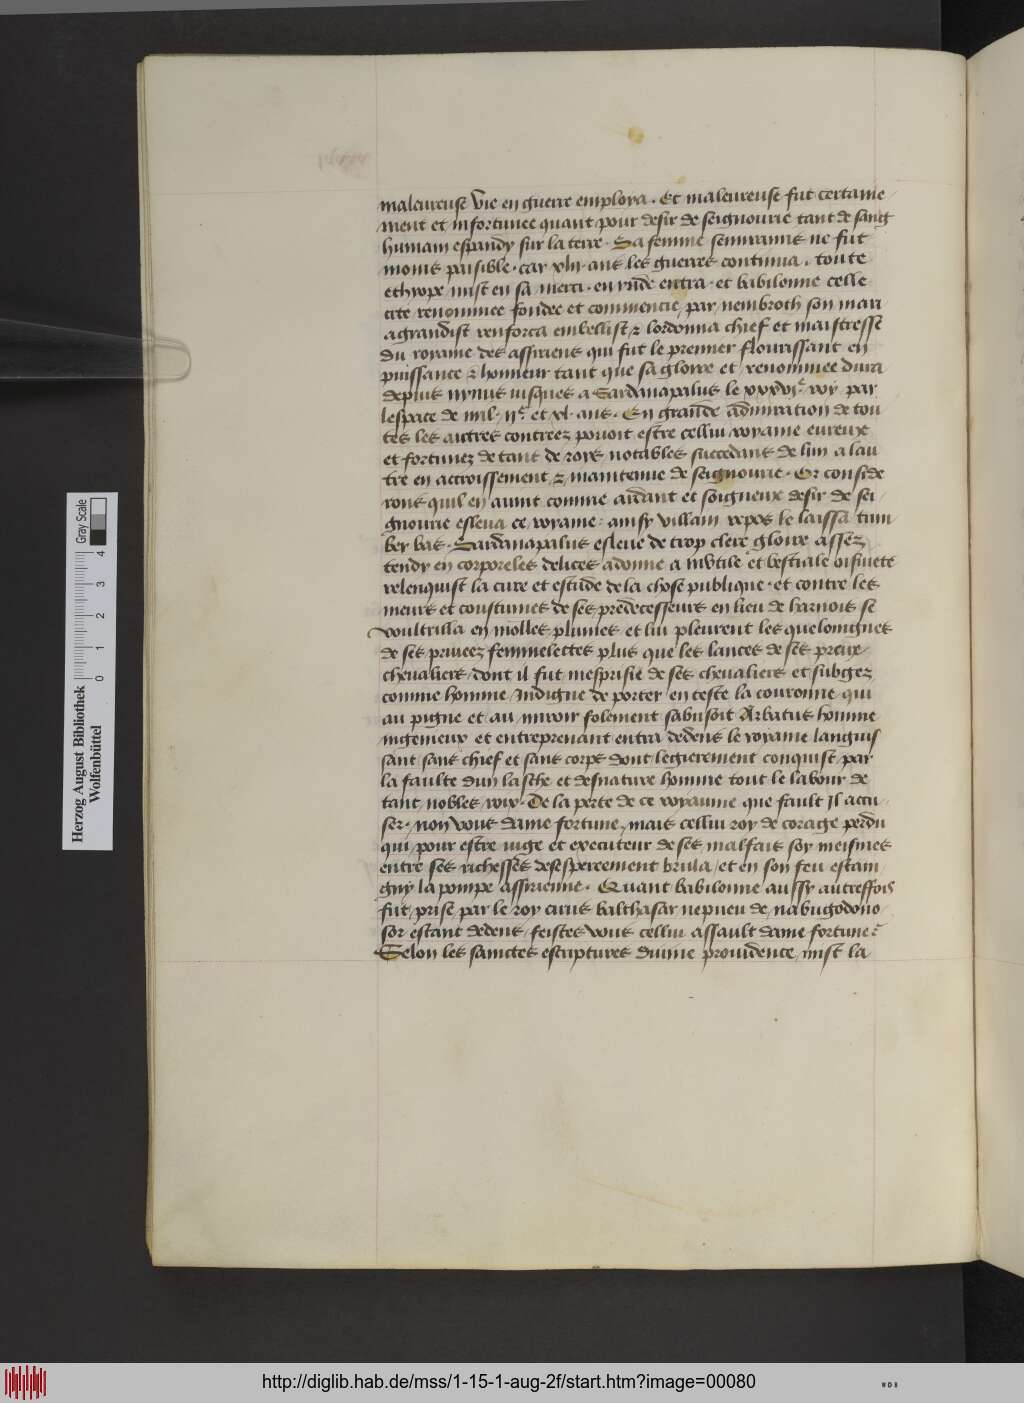 maleureuse vie en guerre employa. Et maleureuse fut certaine
ment et infortunee quant pour desir de seignourie tant de sang
humain espandy sur la terre. Sa femme semiramis ne fut
moins paisible. car xlij. ans les guerres continua. toute
ethyope mist en sa merci. en ynde entra. et babilonne celle
cite renommee fondee et commencie par nembroth son mari
agrandist renforca embellist & lordonna chief et maistresse
du royame des assiriens qui fut le premier flourissant en
puissance & honneur tant que sa gloire et renommee dura
depuis nynus iusques a Sardanapalus le xxxvj.e roy par
lespace de mil. ij.c et xl. ans. En grande admiration de tou
tes les autres contreez pouoit estre cellui royame eureux
et fortunez de tant de roys notables succedans de lun a lau
tre en accroissement & maintenue de seignourie. Or conside
rons quil en auint comme ardant et soigneux desir de sei
gnourie esleua ce royame. ainsy villain repos le laissa tum
ber bas. Sardanapalus esleue de trop clere gloire assez
tendy en corporeles delices adonne a inutile et bestiale oisiuete
relenquist la cure et estude de la chose publique. et contre les
meurs et coustumes de ses predecesseurs en lieu de harnois se
voultrilla en molles plumes et lui pleurent les queloingnes
de ses priueez femmelettes plus que les lances de ses preux
cheualiers. dont il fut mesprisie de ses cheualiers et subgez
comme homme indigne de porter en teste la couronne. qui
au pigne et au miroir folement sabusoit Arbatus homme
ingenieux et entreprenant entra dedens le royame languis
sant sans chief et sans corps dont legierement conquist par
la faulte dun lasche et desnature homme tout le labour de
tant nobles roix. De la perte de ce royaume que fault il accu
ser. non vous dame fortune, mais cellui roy de corage perdu
qui pour estre iuge et executeur de ses malfais soy meismes
entre ses richesses desespereement brula et en son feu estain
gny la pompe assirienne. Quant babilonne aussy autreffois
fut prise par le roy cirus balthasar nepueu de nabugodono
sor estant dedens, feistes vous cellui assault dame fortune?
Selon les sainctes escriptures diuine prouidence mist la
Herzog August Bibliothek
Wolfenbüttel
0 1 2 3 4
Gray Scale
http://diglib.hab.de/mss/1-15-1-aug-2f/start.htm?image=00080
WDB